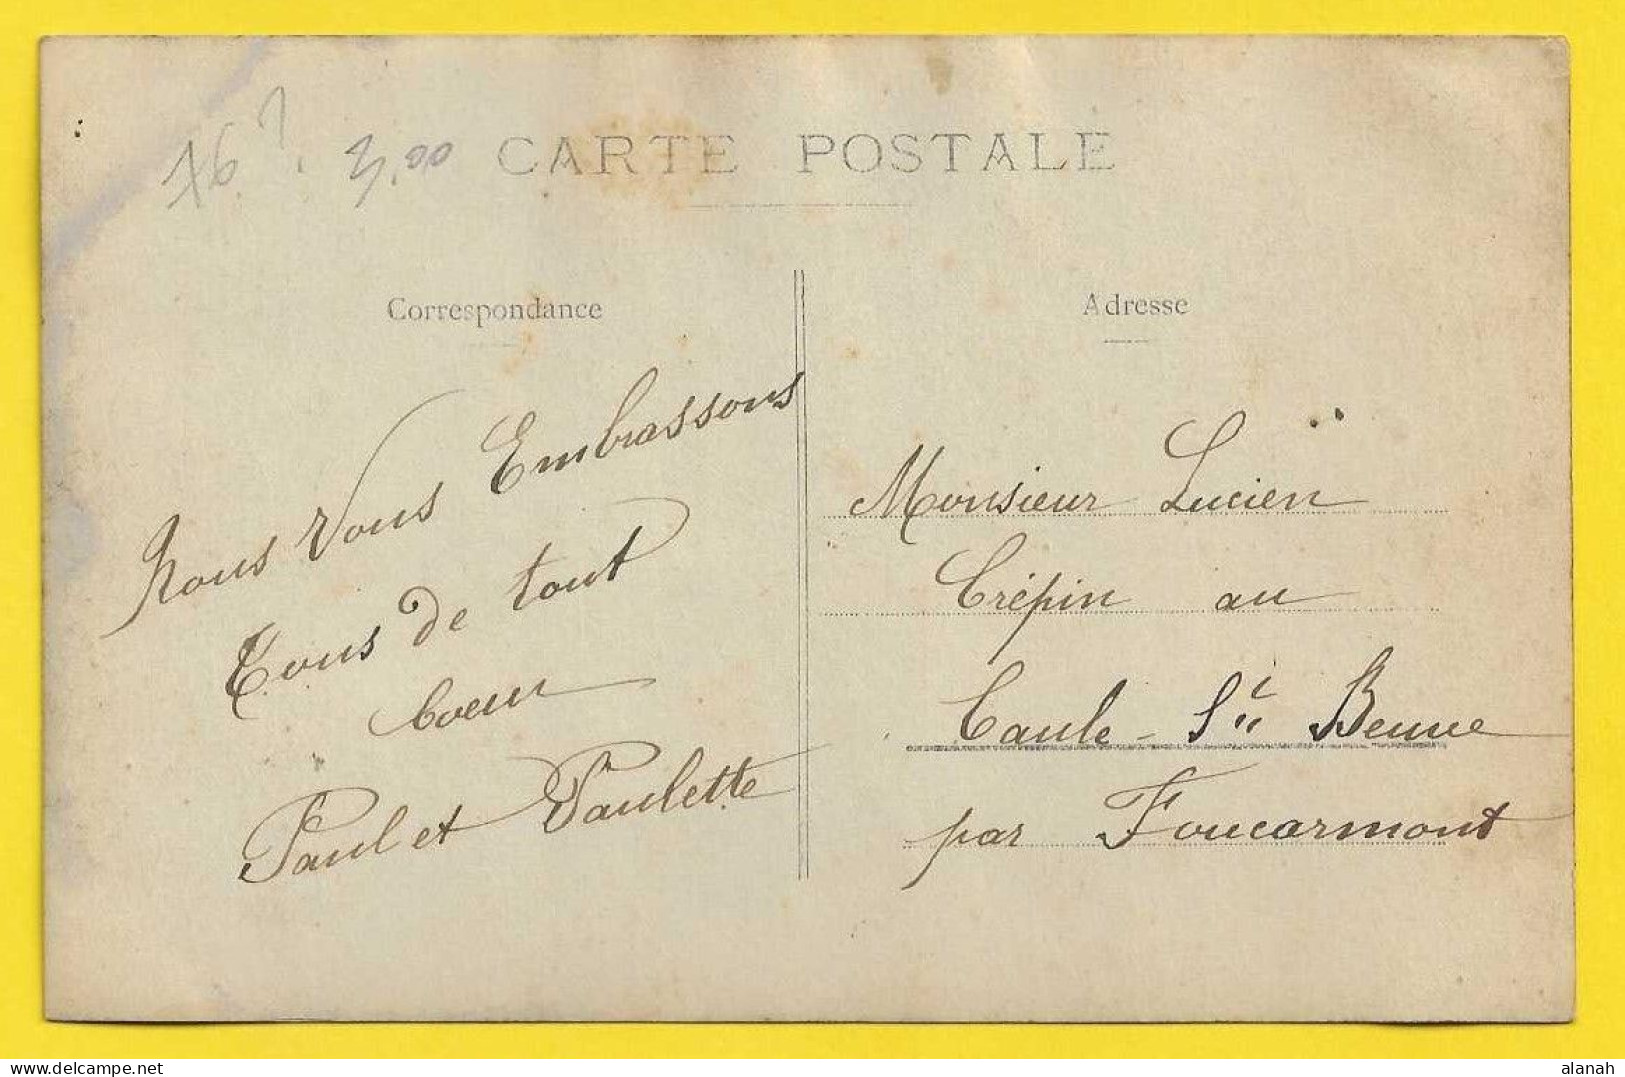 76? 3,00 CARTE POSTALE
Correspondance
Nous Vous Embrassons
Tous de tout
Coeur
Paul et Paulette
Adresse
Monsieur Lucien
Crépin au
Caule - Ste Beuve
par Foucarmont
delcampe.net
alanah